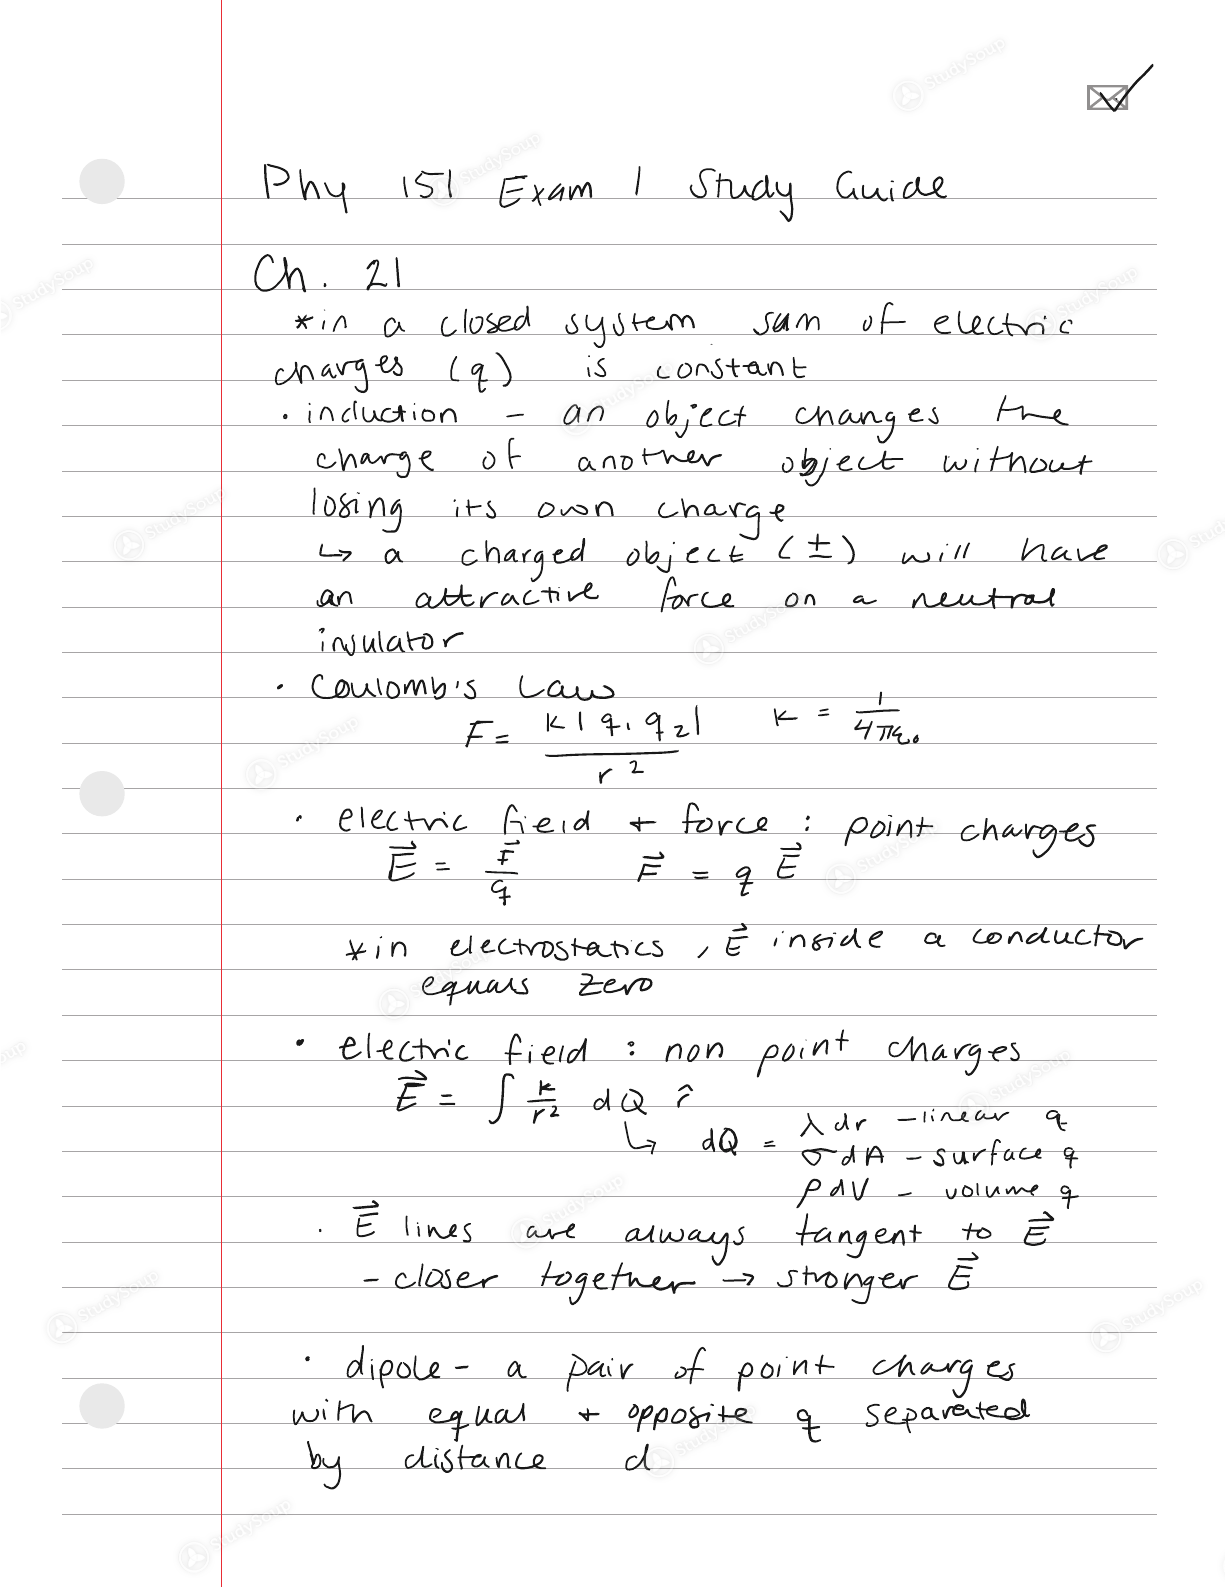 Phy 151 Exam 1 Study Guide
Ch. 21
*in a closed system sum of electric
charges (q) is constant
· induction - an object changes the
charge of another object without
losing its own charge
↳ a charged object (±) will have
an attractive force on a neutral
insulator
· Coulomb's Law
F = k|q₁q₂| / r²   k = 1 / 4πε₀
· electric field + force : point charges
E⃗ = F⃗ / q   F⃗ = q E⃗
*in electrostatics, E⃗ inside a conductor
equals zero
· electric field : non point charges
E⃗ = ∫ k/r² dQ r̂
↳ dQ = λdr - linear q
σdA - surface q
ρdV - volume q
· E⃗ lines are always tangent to E⃗
- closer together → stronger E⃗
· dipole - a pair of point charges
with equal + opposite q separated
by distance d
StudySoup